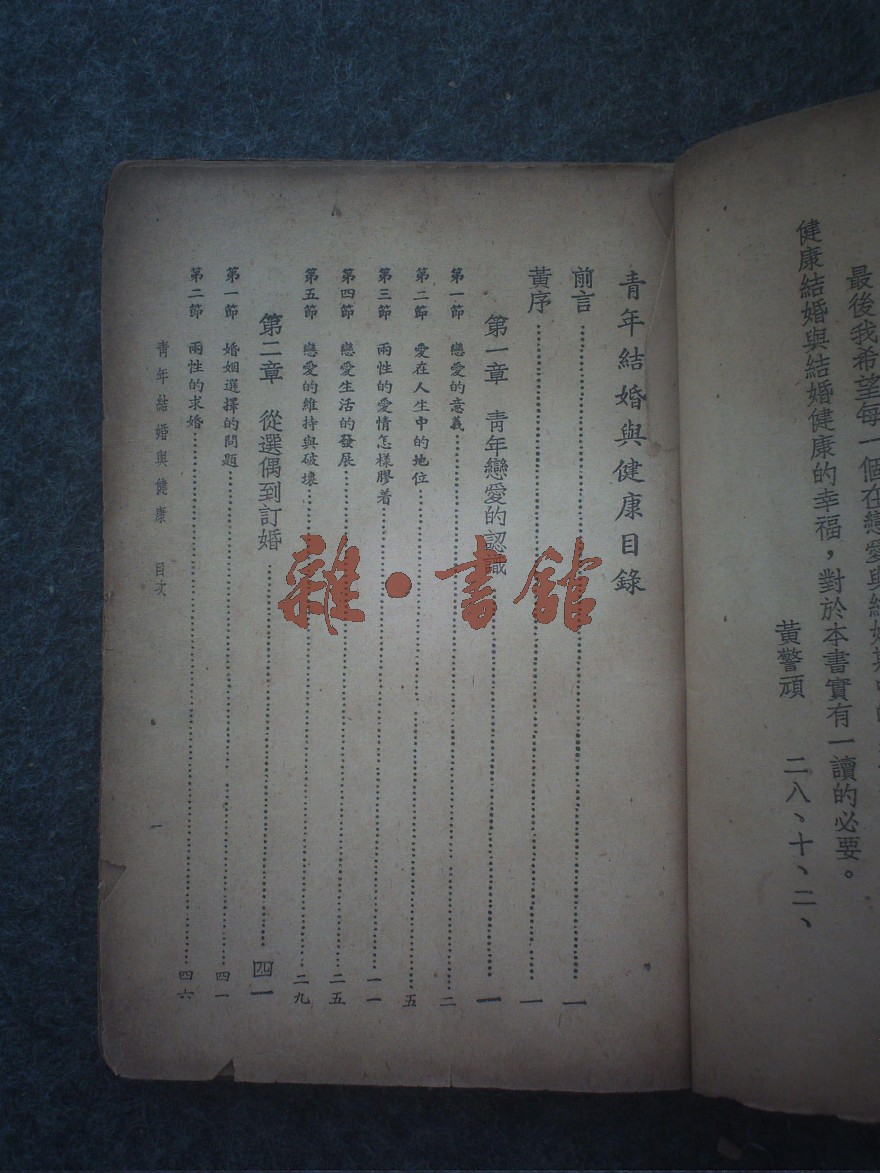 最後我希望每一個在戀愛與結婚期中的
健康結婚與結婚健康的幸福，對於本書實有一讀的必要。
黃警頑　二八、十、二、
青年結婚與健康目錄
前言……一
黃序……一
第一章　青年戀愛的認識……一
第一節　戀愛的意義……二
第二節　愛在人生中的地位……五
第三節　兩性的愛情怎樣膠着……一一
第四節　戀愛生活的發展……二五
第五節　戀愛的維持與破壞……二九
第二章　從選偶到訂婚……四一
第一節　婚姻選擇的問題……四一
第二節　兩性的求婚……四六
青年結婚與健康　目次　一
雜·書館